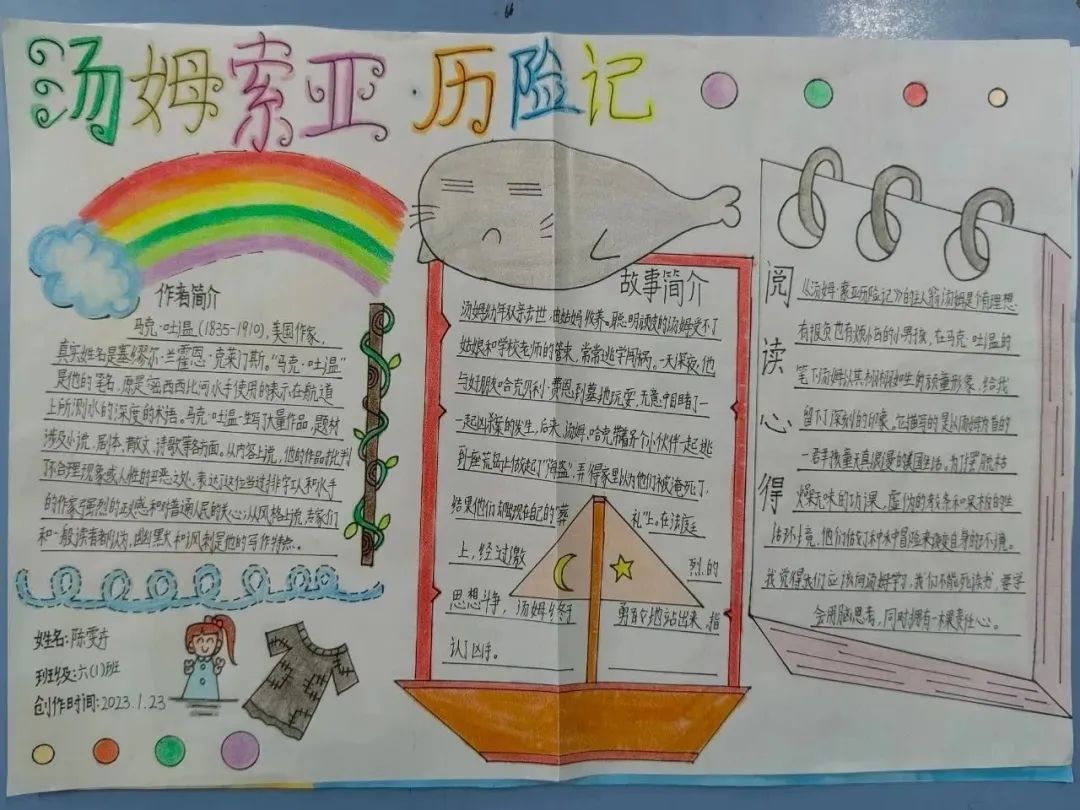 汤姆索亚·历险记
作者简介
马克·吐温(1835-1910),美国作家,
真实姓名是塞缪尔·兰霍恩·克莱门斯。“马克·吐温”
是他的笔名,原是密西西比河水手使用的表示在航道
上所测水的深度的术语。马克·吐温一生写了大量作品,题材
涉及小说、剧本、散文、诗歌等各方面。从内容上说,他的作品批判
了不合理现象或人性的丑恶之处,表达了这位当过排字工人和水手
的作家强烈的正义感和对普通人民的关心;从风格上说,专家们
和一般读者都认为,幽默和讽刺是他的写作特点。
姓名:陈雯卉
班级:六(1)班
创作时间:2023.1.23
故事简介
汤姆幼年双亲去世,由姑妈收养。聪明顽皮的汤姆受不了
姑娘和学校老师的管束,常常逃学闯祸。一天深夜,他
与好朋友哈克贝利·费恩到墓地玩耍,无意中目睹了一
一起凶杀案的发生,后来,汤姆、哈克带着另个小伙伴一起逃
到一座荒岛上做起了“海盗”,弄得家里以为他们被淹死了,
结果他们却出现在自己的“葬礼”上。在法庭
上,经过激烈的
思想斗争,汤姆终于勇敢地站出来,指
认了凶手。
阅读心得
《汤姆·索亚历险记》的主人翁汤姆是个有理想
有报负也有烦恼的小男孩,在马克·吐温的
笔下汤姆以其栩栩如生的顽童形象,给我
留下了深刻的印象。它描写的是以汤姆为首的
一群孩童天真浪漫的美国生活。为了摆脱枯
燥无味的功课,虚伪的教条和呆板的生
活环境,他们做了种种冒险来改变自身的环境。
我觉得我们应该向汤姆学习,我们不能死读书,要学
会用脑思考,同时拥有一颗责任心。